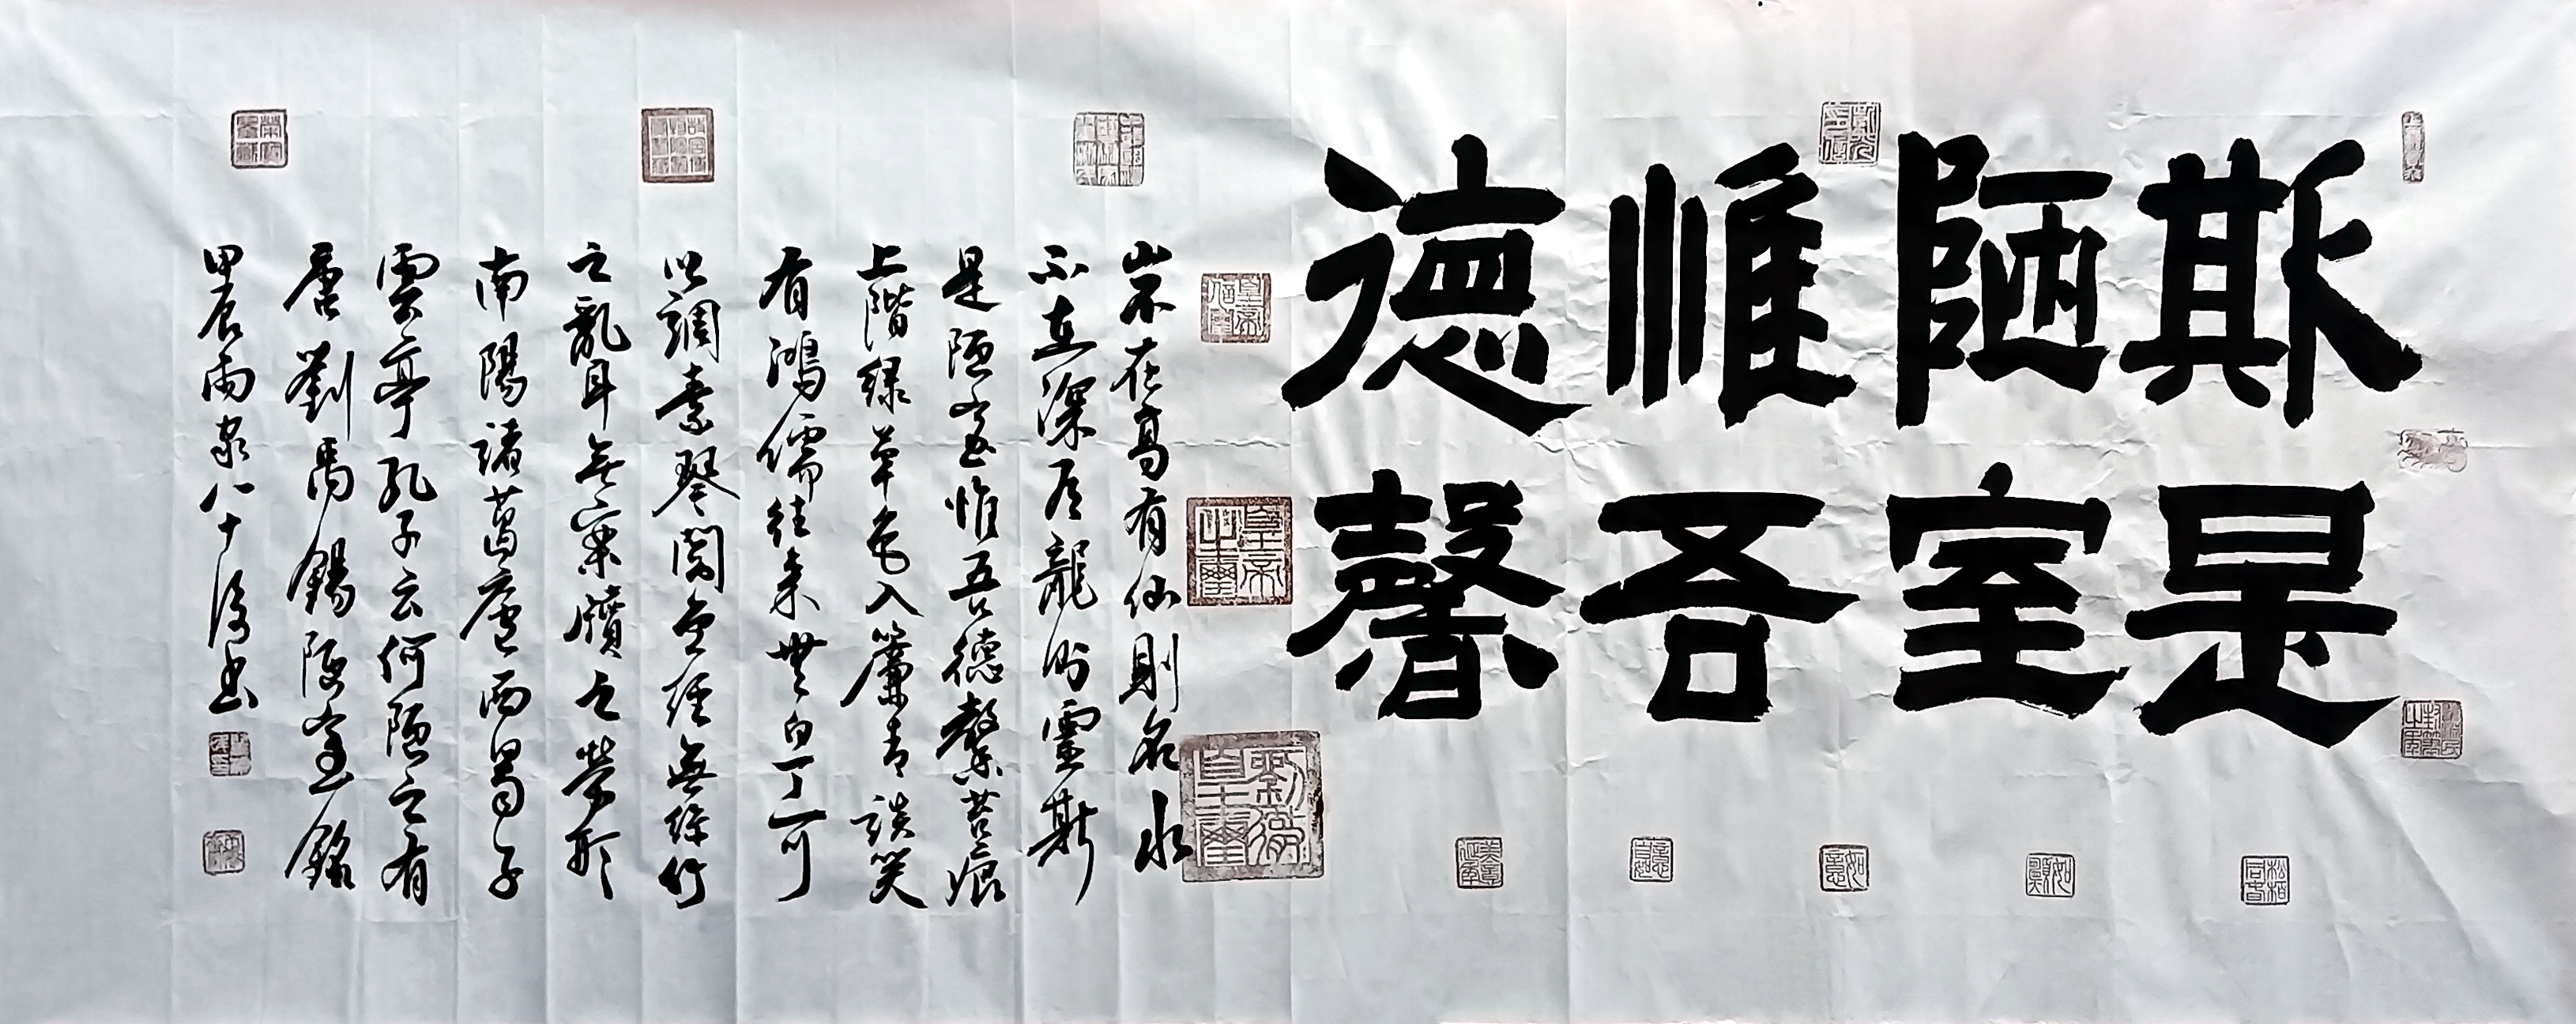 斯是
陋室
惟吾
德馨
山不在高有仙則名水
不在深有龍則靈斯
是陋室惟吾德馨苔痕
上階緑草色入簾青談笑
有鴻儒往来無白丁可
以調素琴閲金經無絲竹
之亂耳無案牘之勞形
南陽諸葛廬西蜀子
雲亭孔子云何陋之有
唐劉禹錫陋室銘
甲辰雨
八十後書
皇帝
之璽
松柏
同春
如意